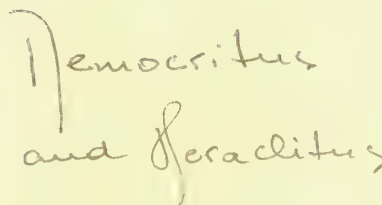 Democritus
and Heraclitus